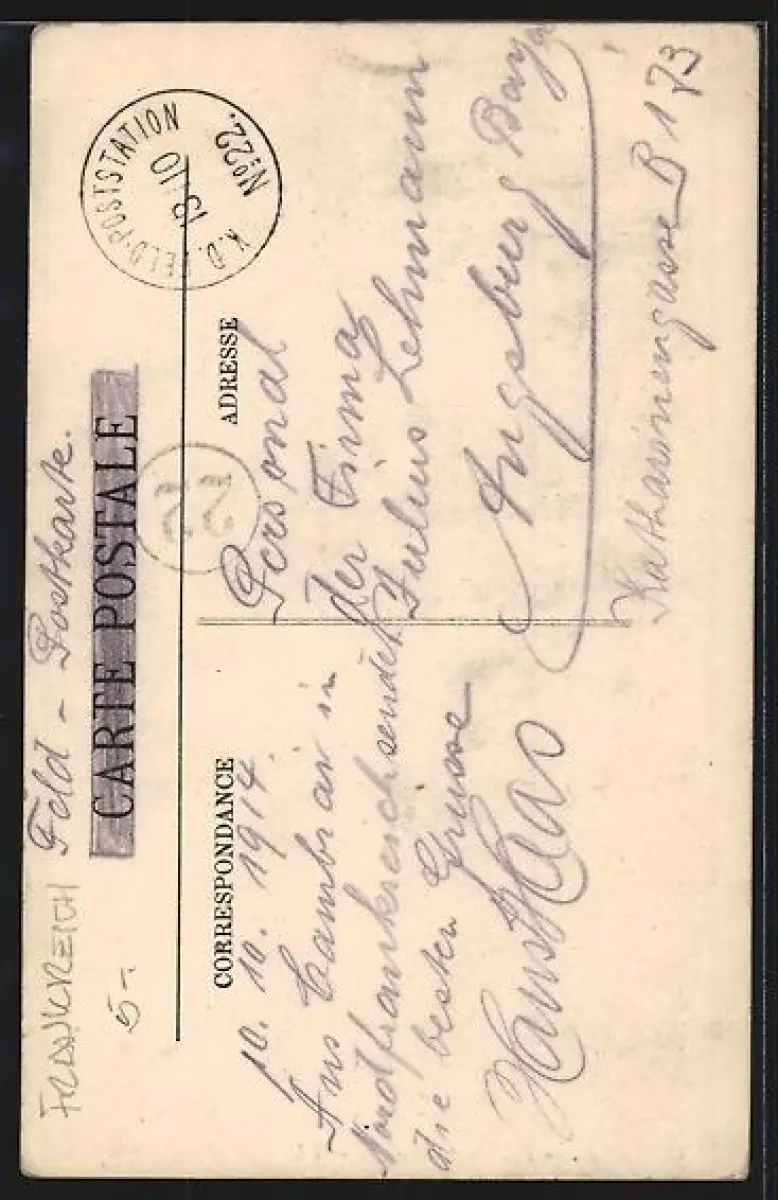 FRANKREICH
5.-
Feld - Postkarte.
CARTE POSTALE
K.D. FELD-POSTSTATION
13 10
No 22.
22
CORRESPONDANCE
10. 10. 1914.
Aus Cambrai in
Nordfrankreich sendet
die besten Grüsse
Hans Haas
ADRESSE
Personal
der Firma
Julius Lehmann
Augsburg Bayr
Katharinengasse B 173